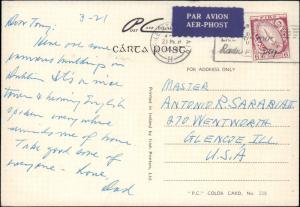 Dear Tony: 3-21
Here are some
famous buildings in
Dublin. It's a nice
town & hearing English
spoken everywhere
reminds me of home
Take good care of
everyone - Love,
Dad
cárta poist
PAR AVION
AER-PHOST
FOR ADDRESS ONLY
MASTER
ANTONIO R. SARABIA II
670 WENTWORTH
GLENCOE, ILL.
U.S.A
Printed in Ireland by Irish Printers, Ltd.
"P.C" COLOR CARD, No.